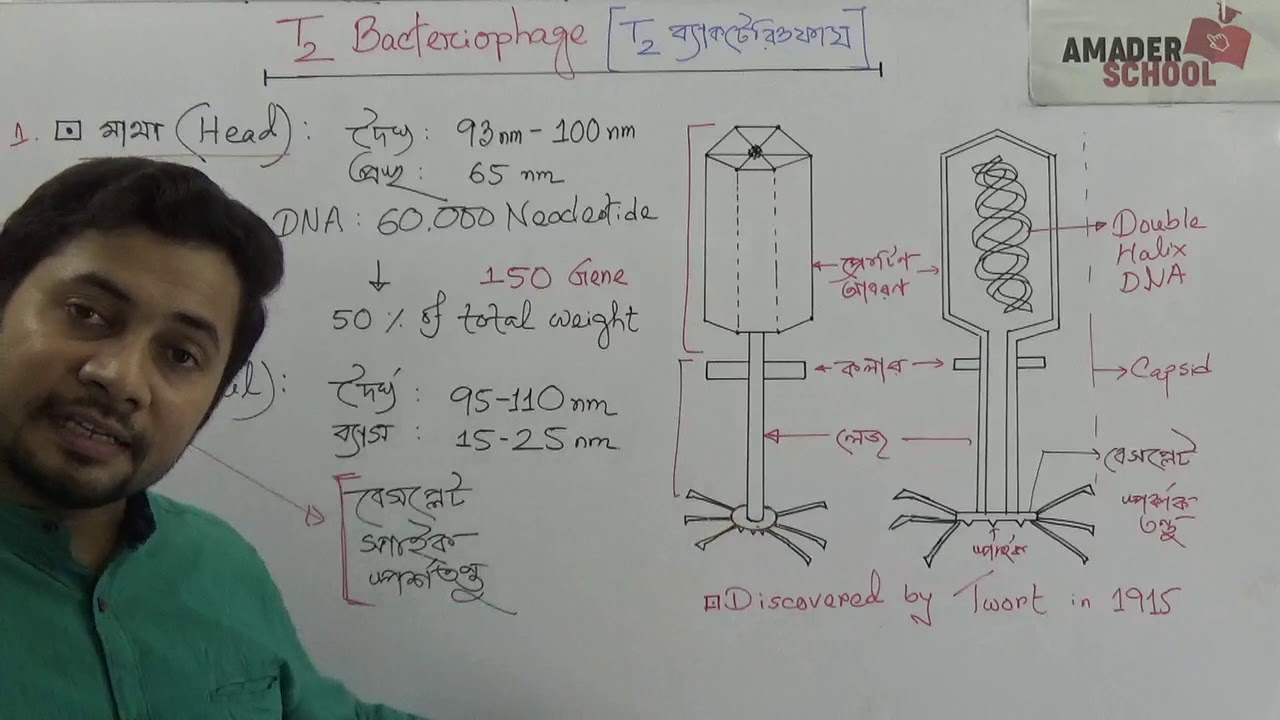 T2 Bacteriophage [T2 ব্যাকটেরিওফায]
AMADER
SCHOOL
1. মাথা (Head) : দৈর্ঘ্য : 93nm - 100nm
প্রস্থ : 65 nm
DNA : 60.000 Neocleotide
↓ 150 Gene
50 % of total weight
দৈর্ঘ্য : 95-110nm
ব্যাস : 15-25nm
বেসপ্লেট
স্পাইক
স্পর্শতন্তু
প্রোটিন
আবরণ
Double
Halix
DNA
কলার
Capsid
লেজ
বেসপ্লেট
স্পর্শক
তন্তু
স্পাইক
Discovered by Twort in 1915